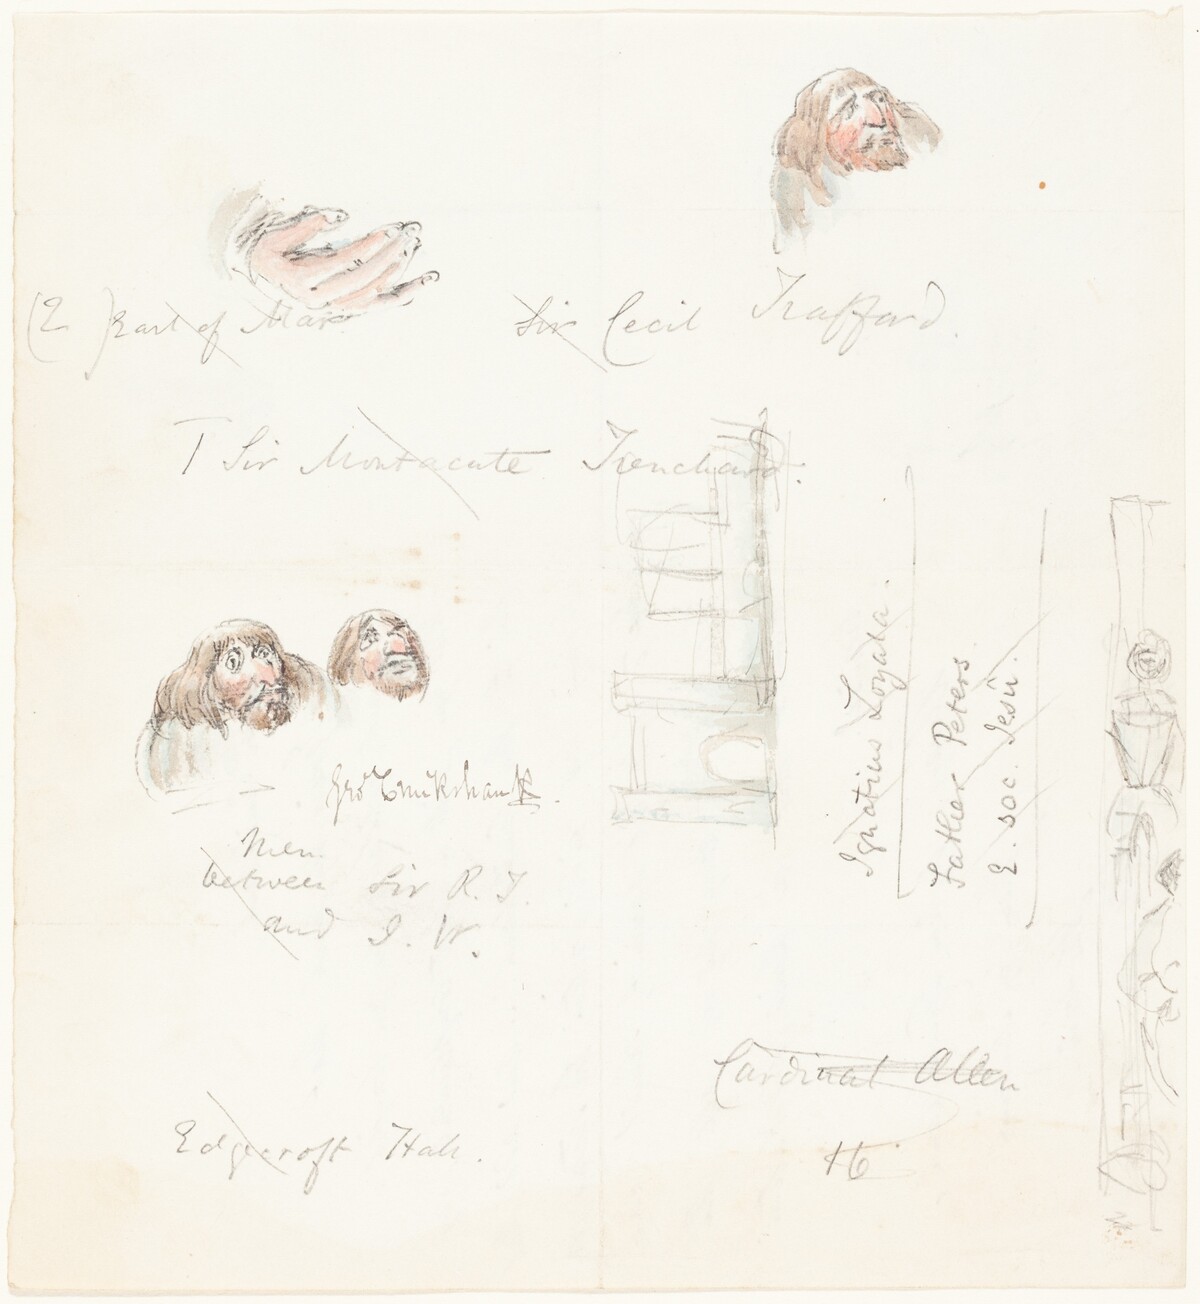 (E) Earl of Mar.
Sir Cecil Trafford.
T Sir Montacute Trenchard.
Ignatius Loyola.
Father Peters
E. Soc. Jesù.
Geo Cruikshank.
Men.
between Sir R. T.
and I. W.
Cardinal Allen
16
Edgecroft Hall.